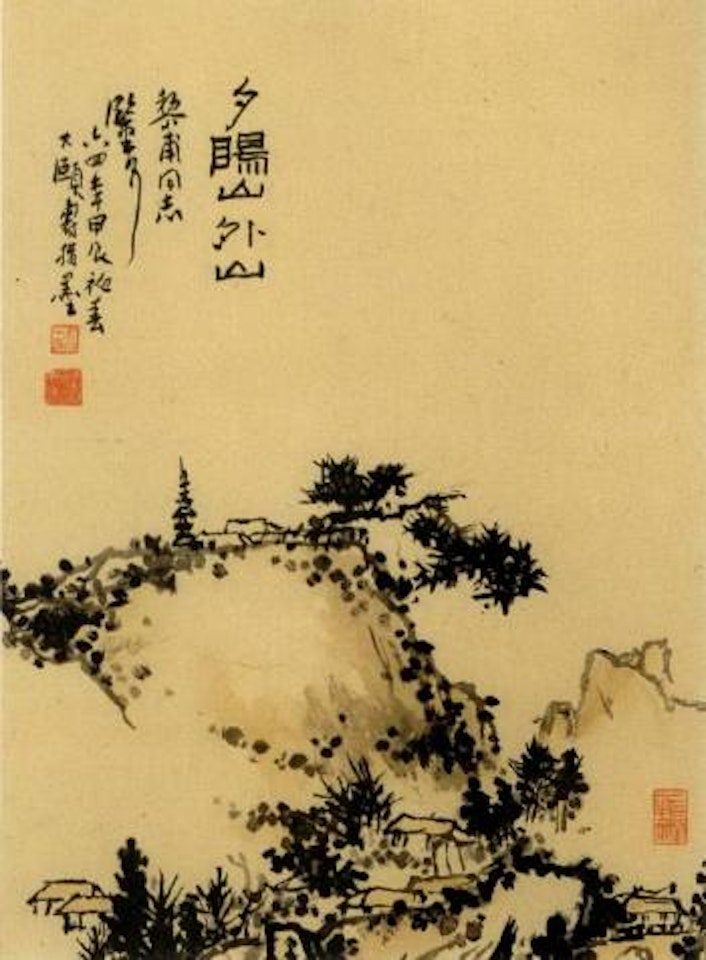 夕陽山外山
黎甫同志
鑒
六四年甲辰初春
大頤壽指墨